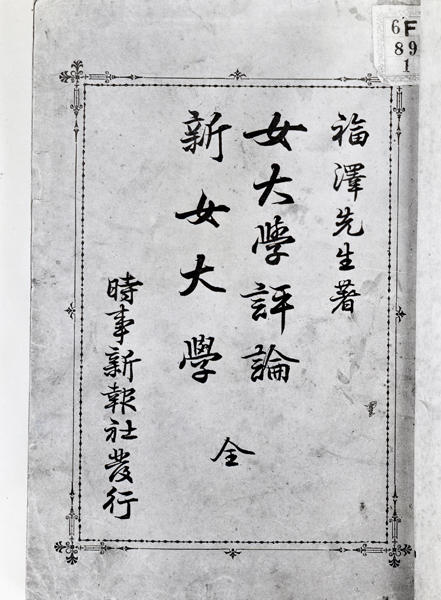 福澤先生著
女大學評論
新女大學
全
時事新報社發行
F
6 9
8
1